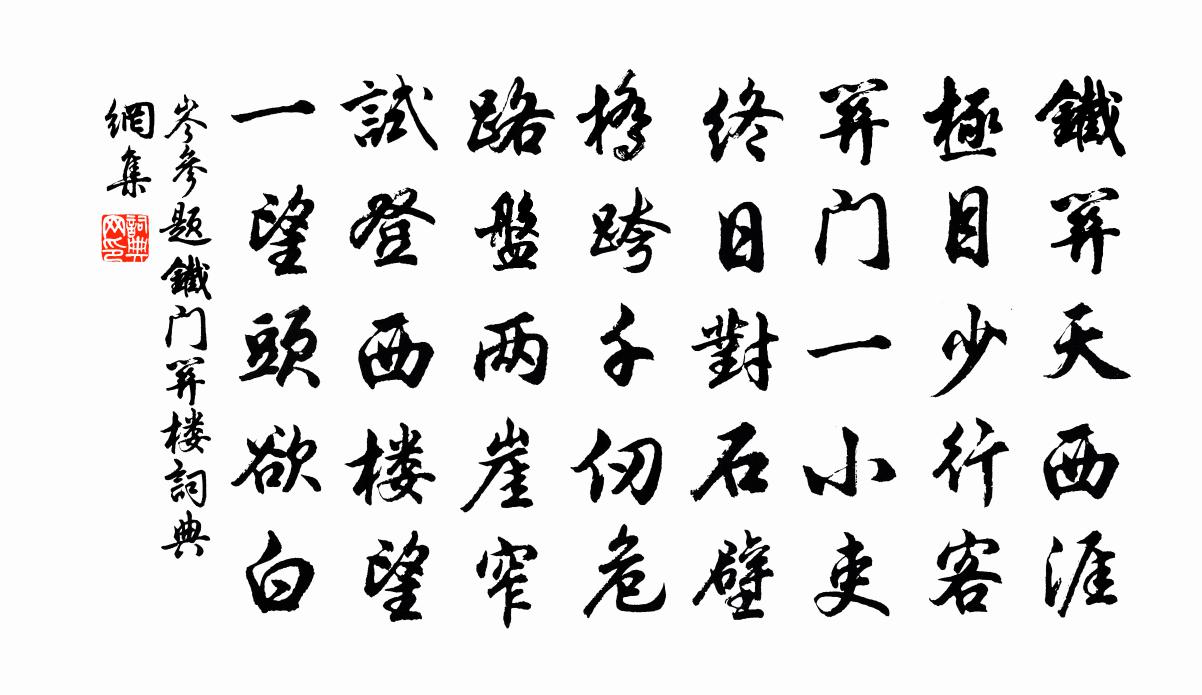 鐵関天西涯
極目少行客
関门一小吏
終日對石壁
橋跨千仞危
路盤两崖窄
試登西楼望
一望頭欲白
岑參題鐵门関楼詞典
網集
詞典
网印